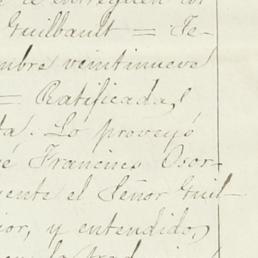 se entreguen los
Guilbault = Fe-
mbre veintinueve
= Ratificada,
ta. Lo proveyó
é Francines Osor-
ente el Señor Guil-
ior, y entendido,